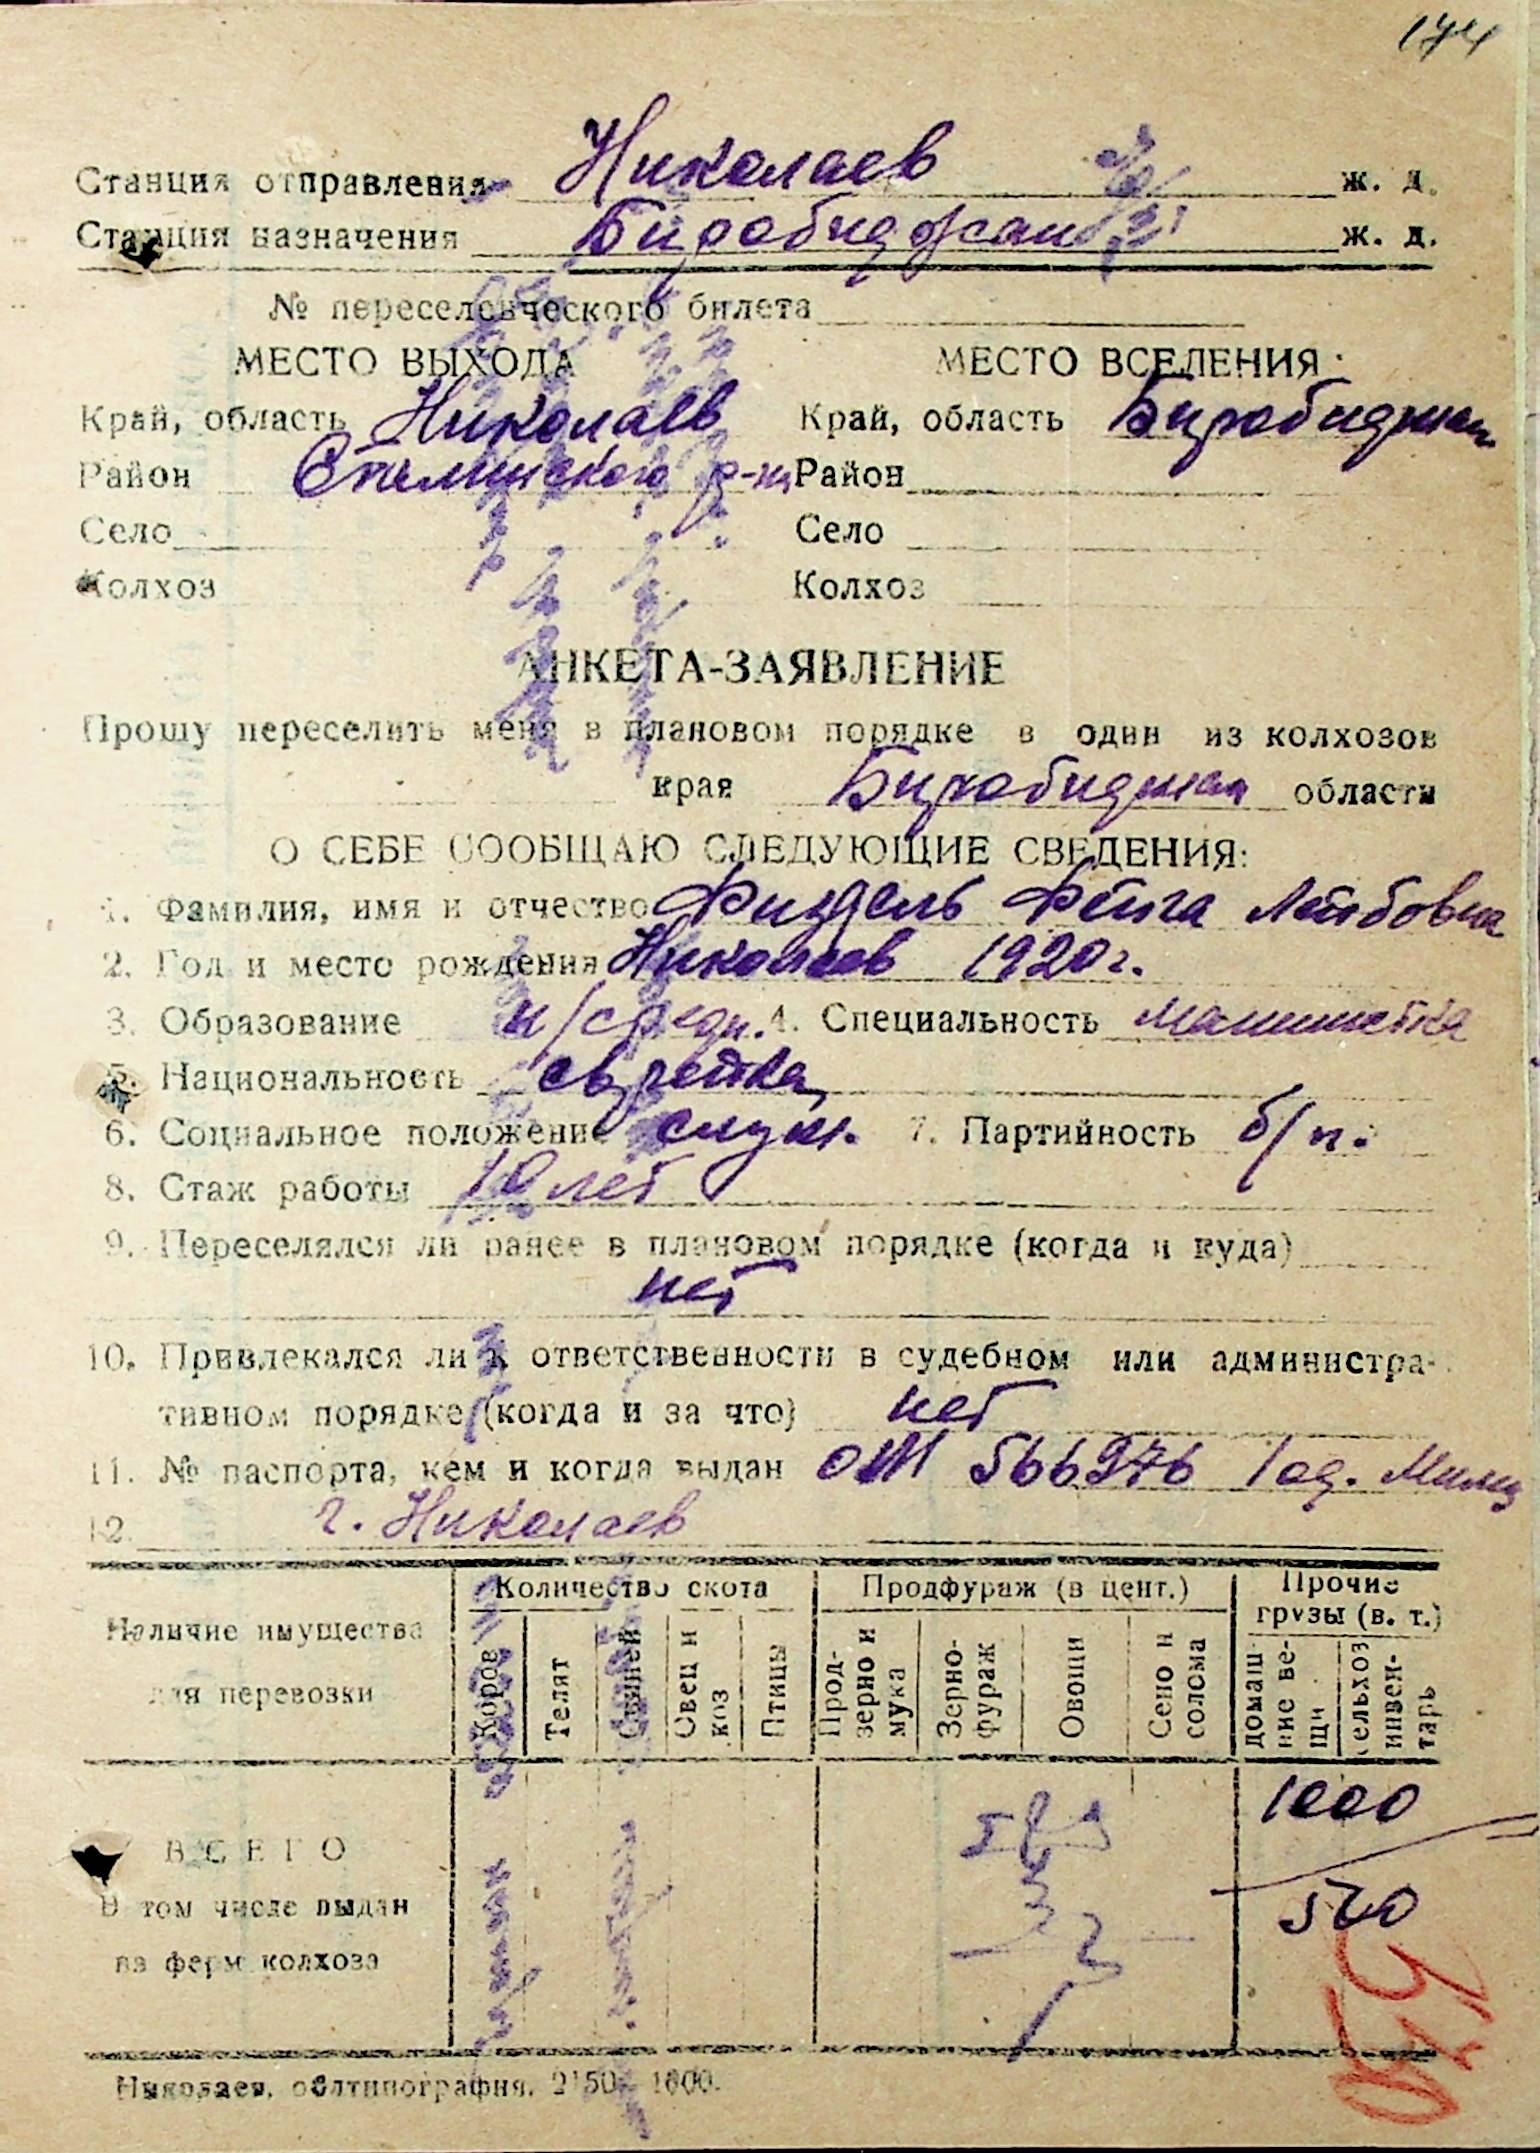 174
Станция отправления Николаев ж. д.
Станция назначения Биробиджан ж. д.
№ переселенческого билета
МЕСТО ВЫХОДА МЕСТО ВСЕЛЕНИЯ:
Край, область Николаев Край, область Биробиджан
Район Сталинского р-на Район
Село Село
Колхоз Колхоз
АНКЕТА-ЗАЯВЛЕНИЕ
Прошу переселить меня в плановом порядке в один из колхозов
края Биробиджан области
О СЕБЕ СООБЩАЮ СЛЕДУЮЩИЕ СВЕДЕНИЯ:
1. Фамилия, имя и отчество Физдель Фейга Лейбовна
2. Год и место рождения Николаев 1920 г.
3. Образование н/средн. 4. Специальность машинистка
5. Национальность еврейка
6. Социальное положение служ. 7. Партийность б/п.
8. Стаж работы 10 лет
9. Переселялся ли ранее в плановом порядке (когда и куда)
нет
10. Привлекался ли к ответственности в судебном или администра-
тивном порядке (когда и за что) нет
11. № паспорта, кем и когда выдан 566976 1 од. Милиц
12. г. Николаев
Наличие имущества для перевозки Количество скота Продфураж (в цент.) Прочие грузы (в. т.)
Коров Телят Свиней Овец и коз Птицы Прод-зерно и мука Зерно-фураж Овощи Сено и солома домаш-ние ве-щи сельхоз инвен-тарь
ВСЕГО 1000
В том числе выдан
из ферм колхоза 520
510
Николаев, облтипография. 2150—1600.